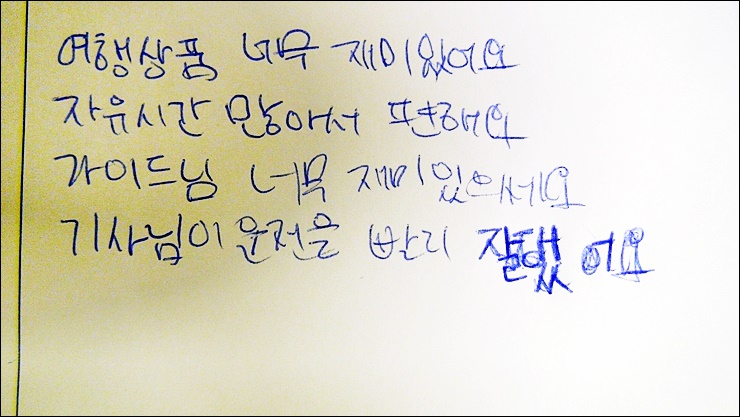 여행상품 너무 재미있어요
자유시간 많아서 편해요
가이드님 너무 재미있으세요
기사님이 운전을 빨리 잘했어요